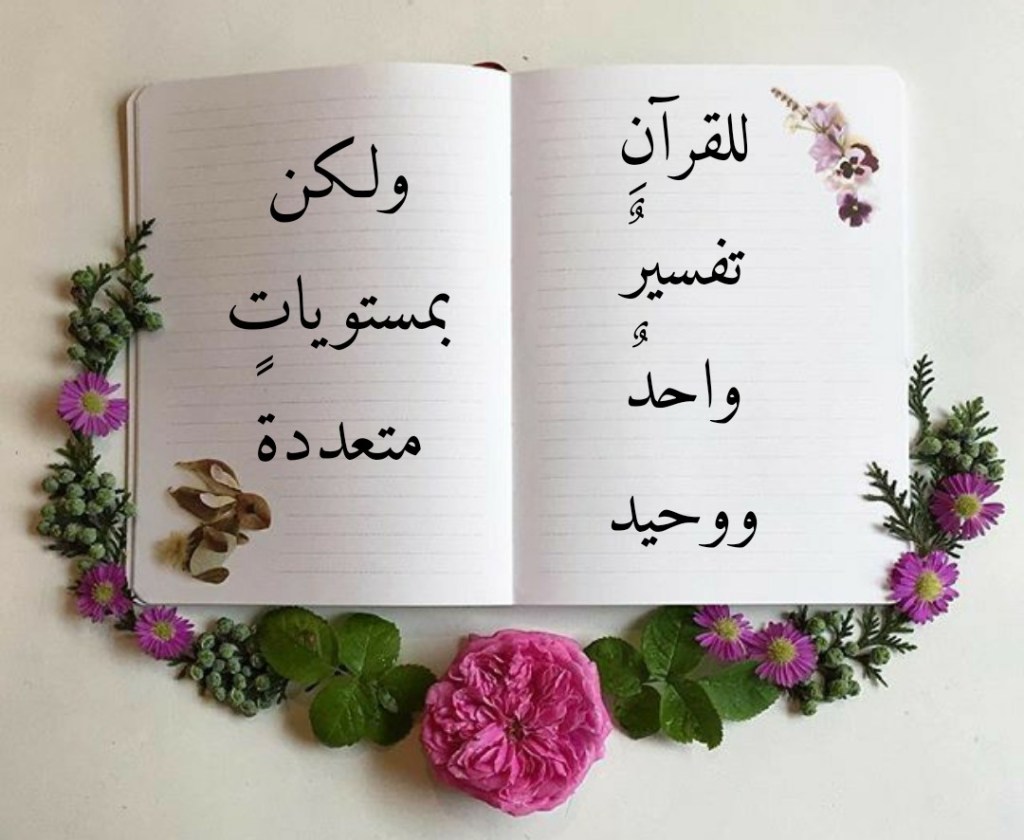 للقرآنِ
تفسيرٌ
واحدٌ
ووحيد
ولكن
بمستوياتٍ
متعددة